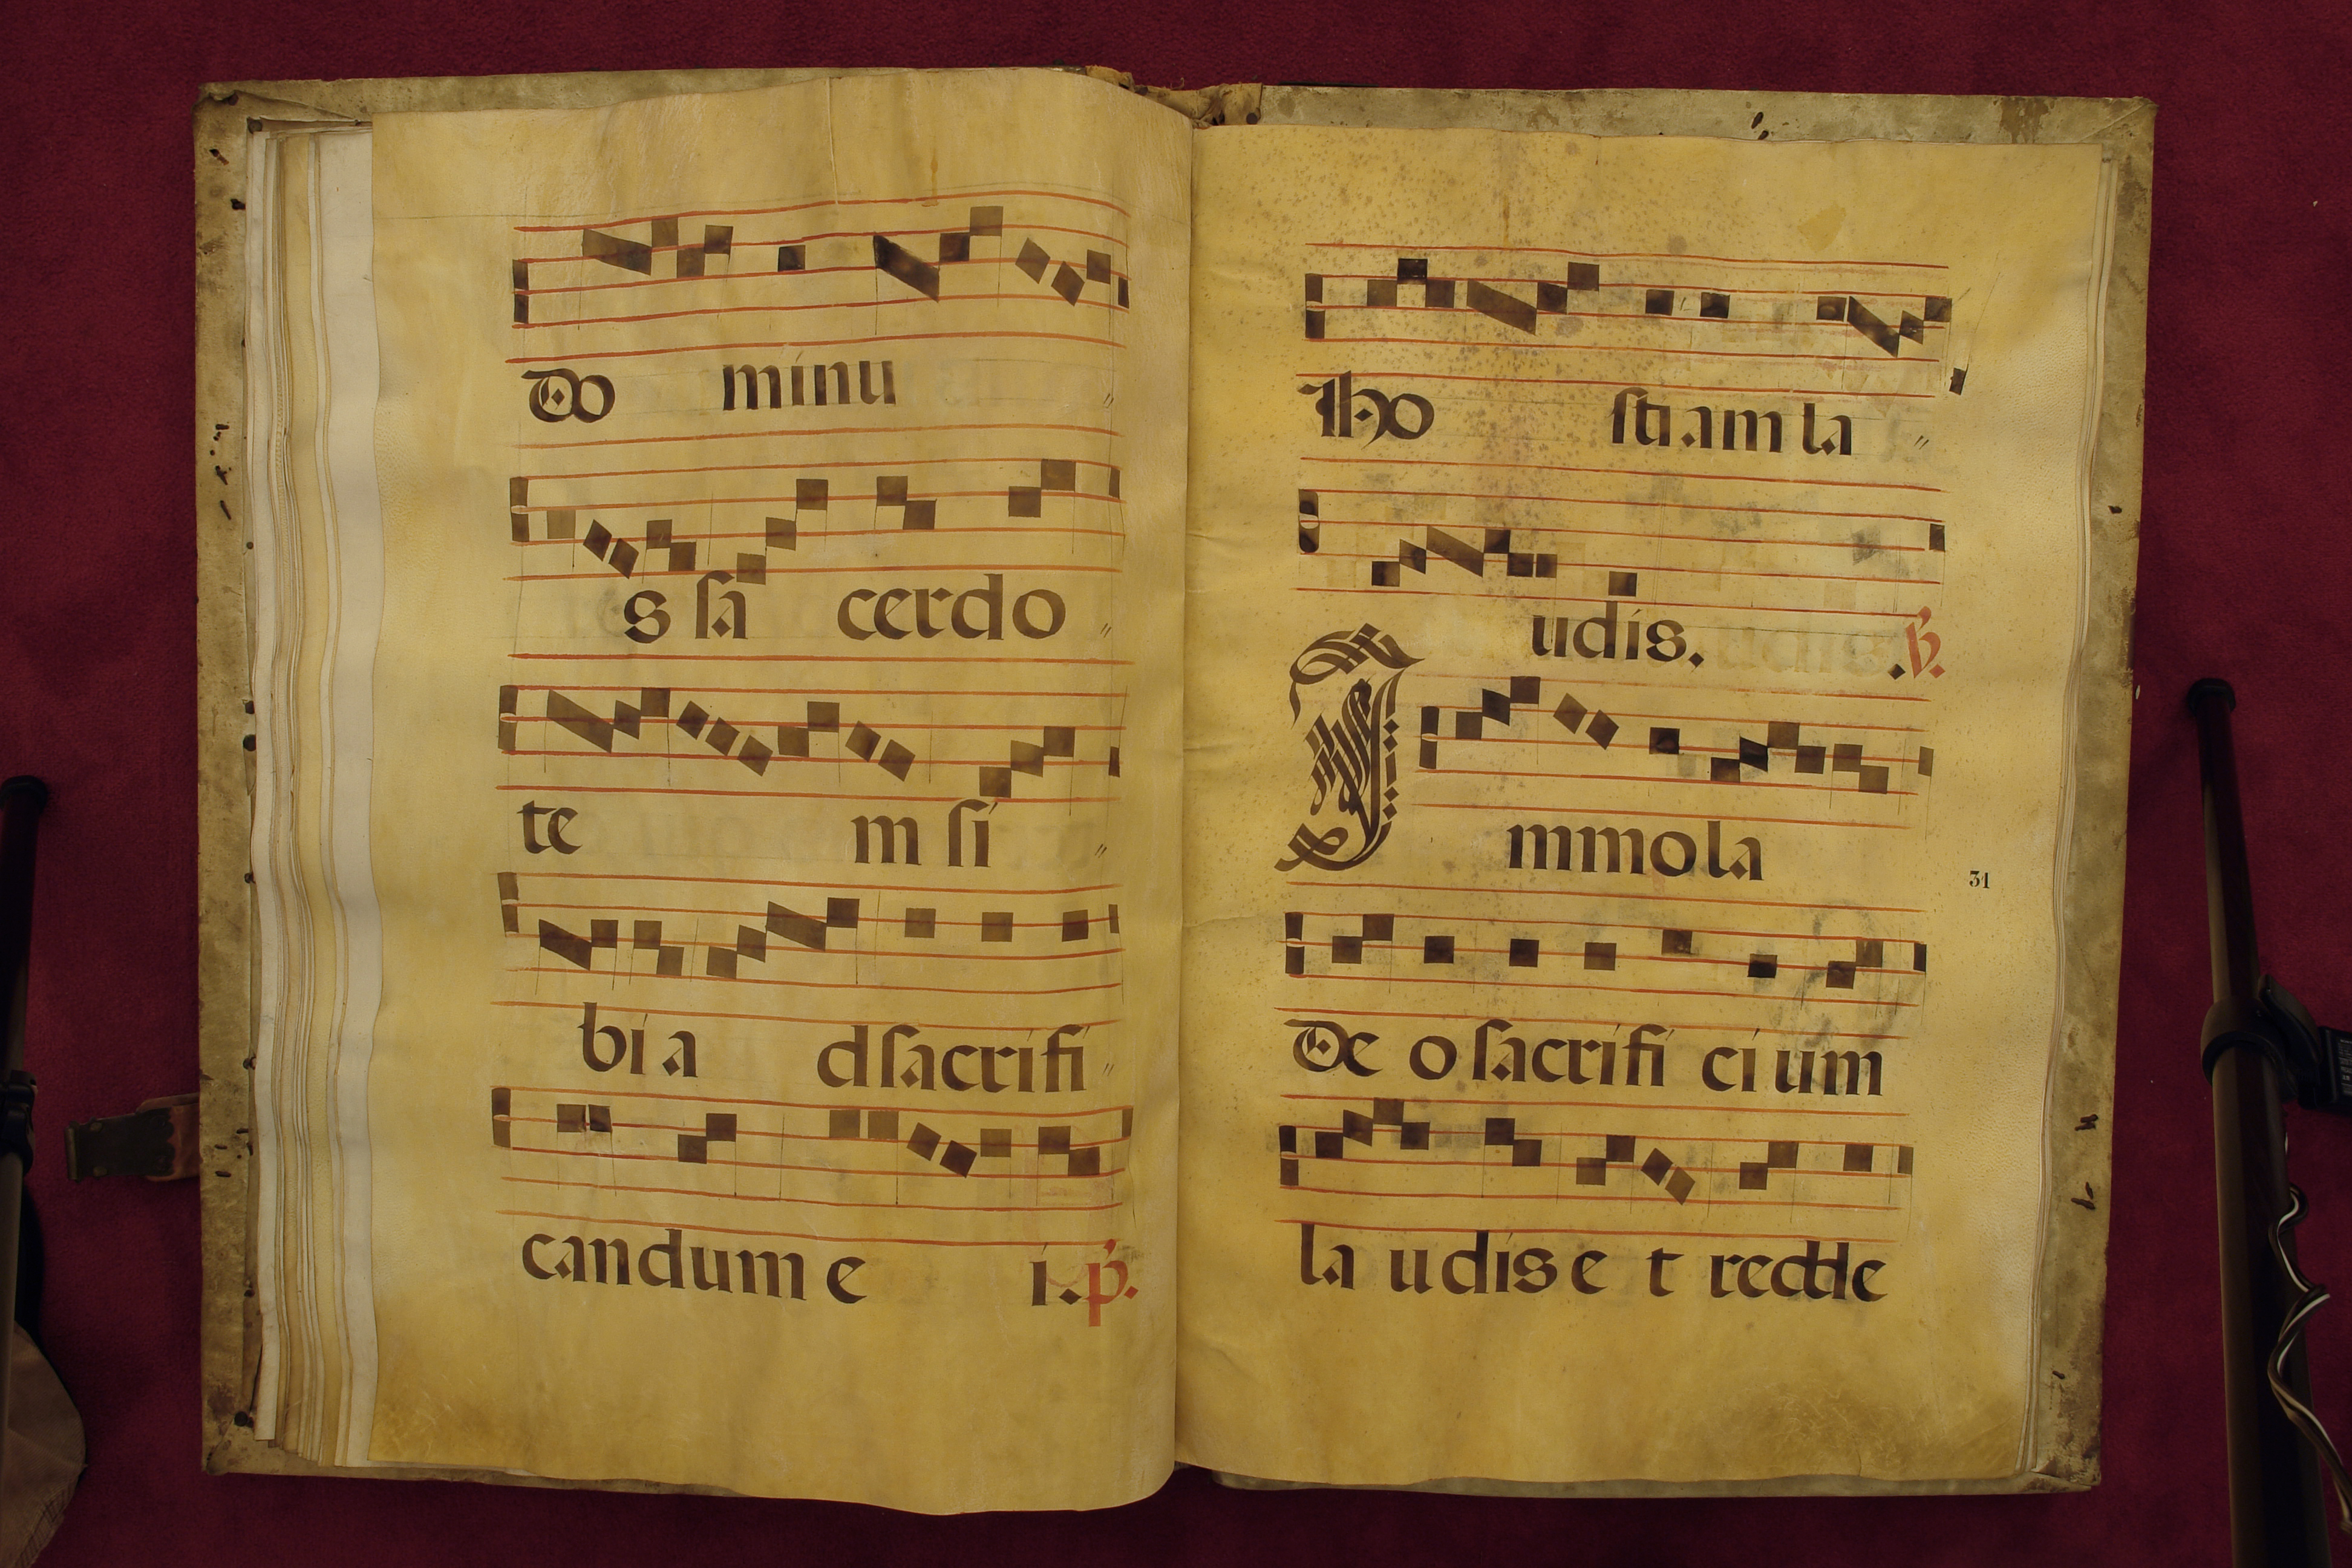 Do minu
s sa cerdo
te m si
bi a d sacrifi
candum e i. p.
Iho stiam la
udis. . V.
I mmola
De o sacrifi ci um
31
la udis e t redde